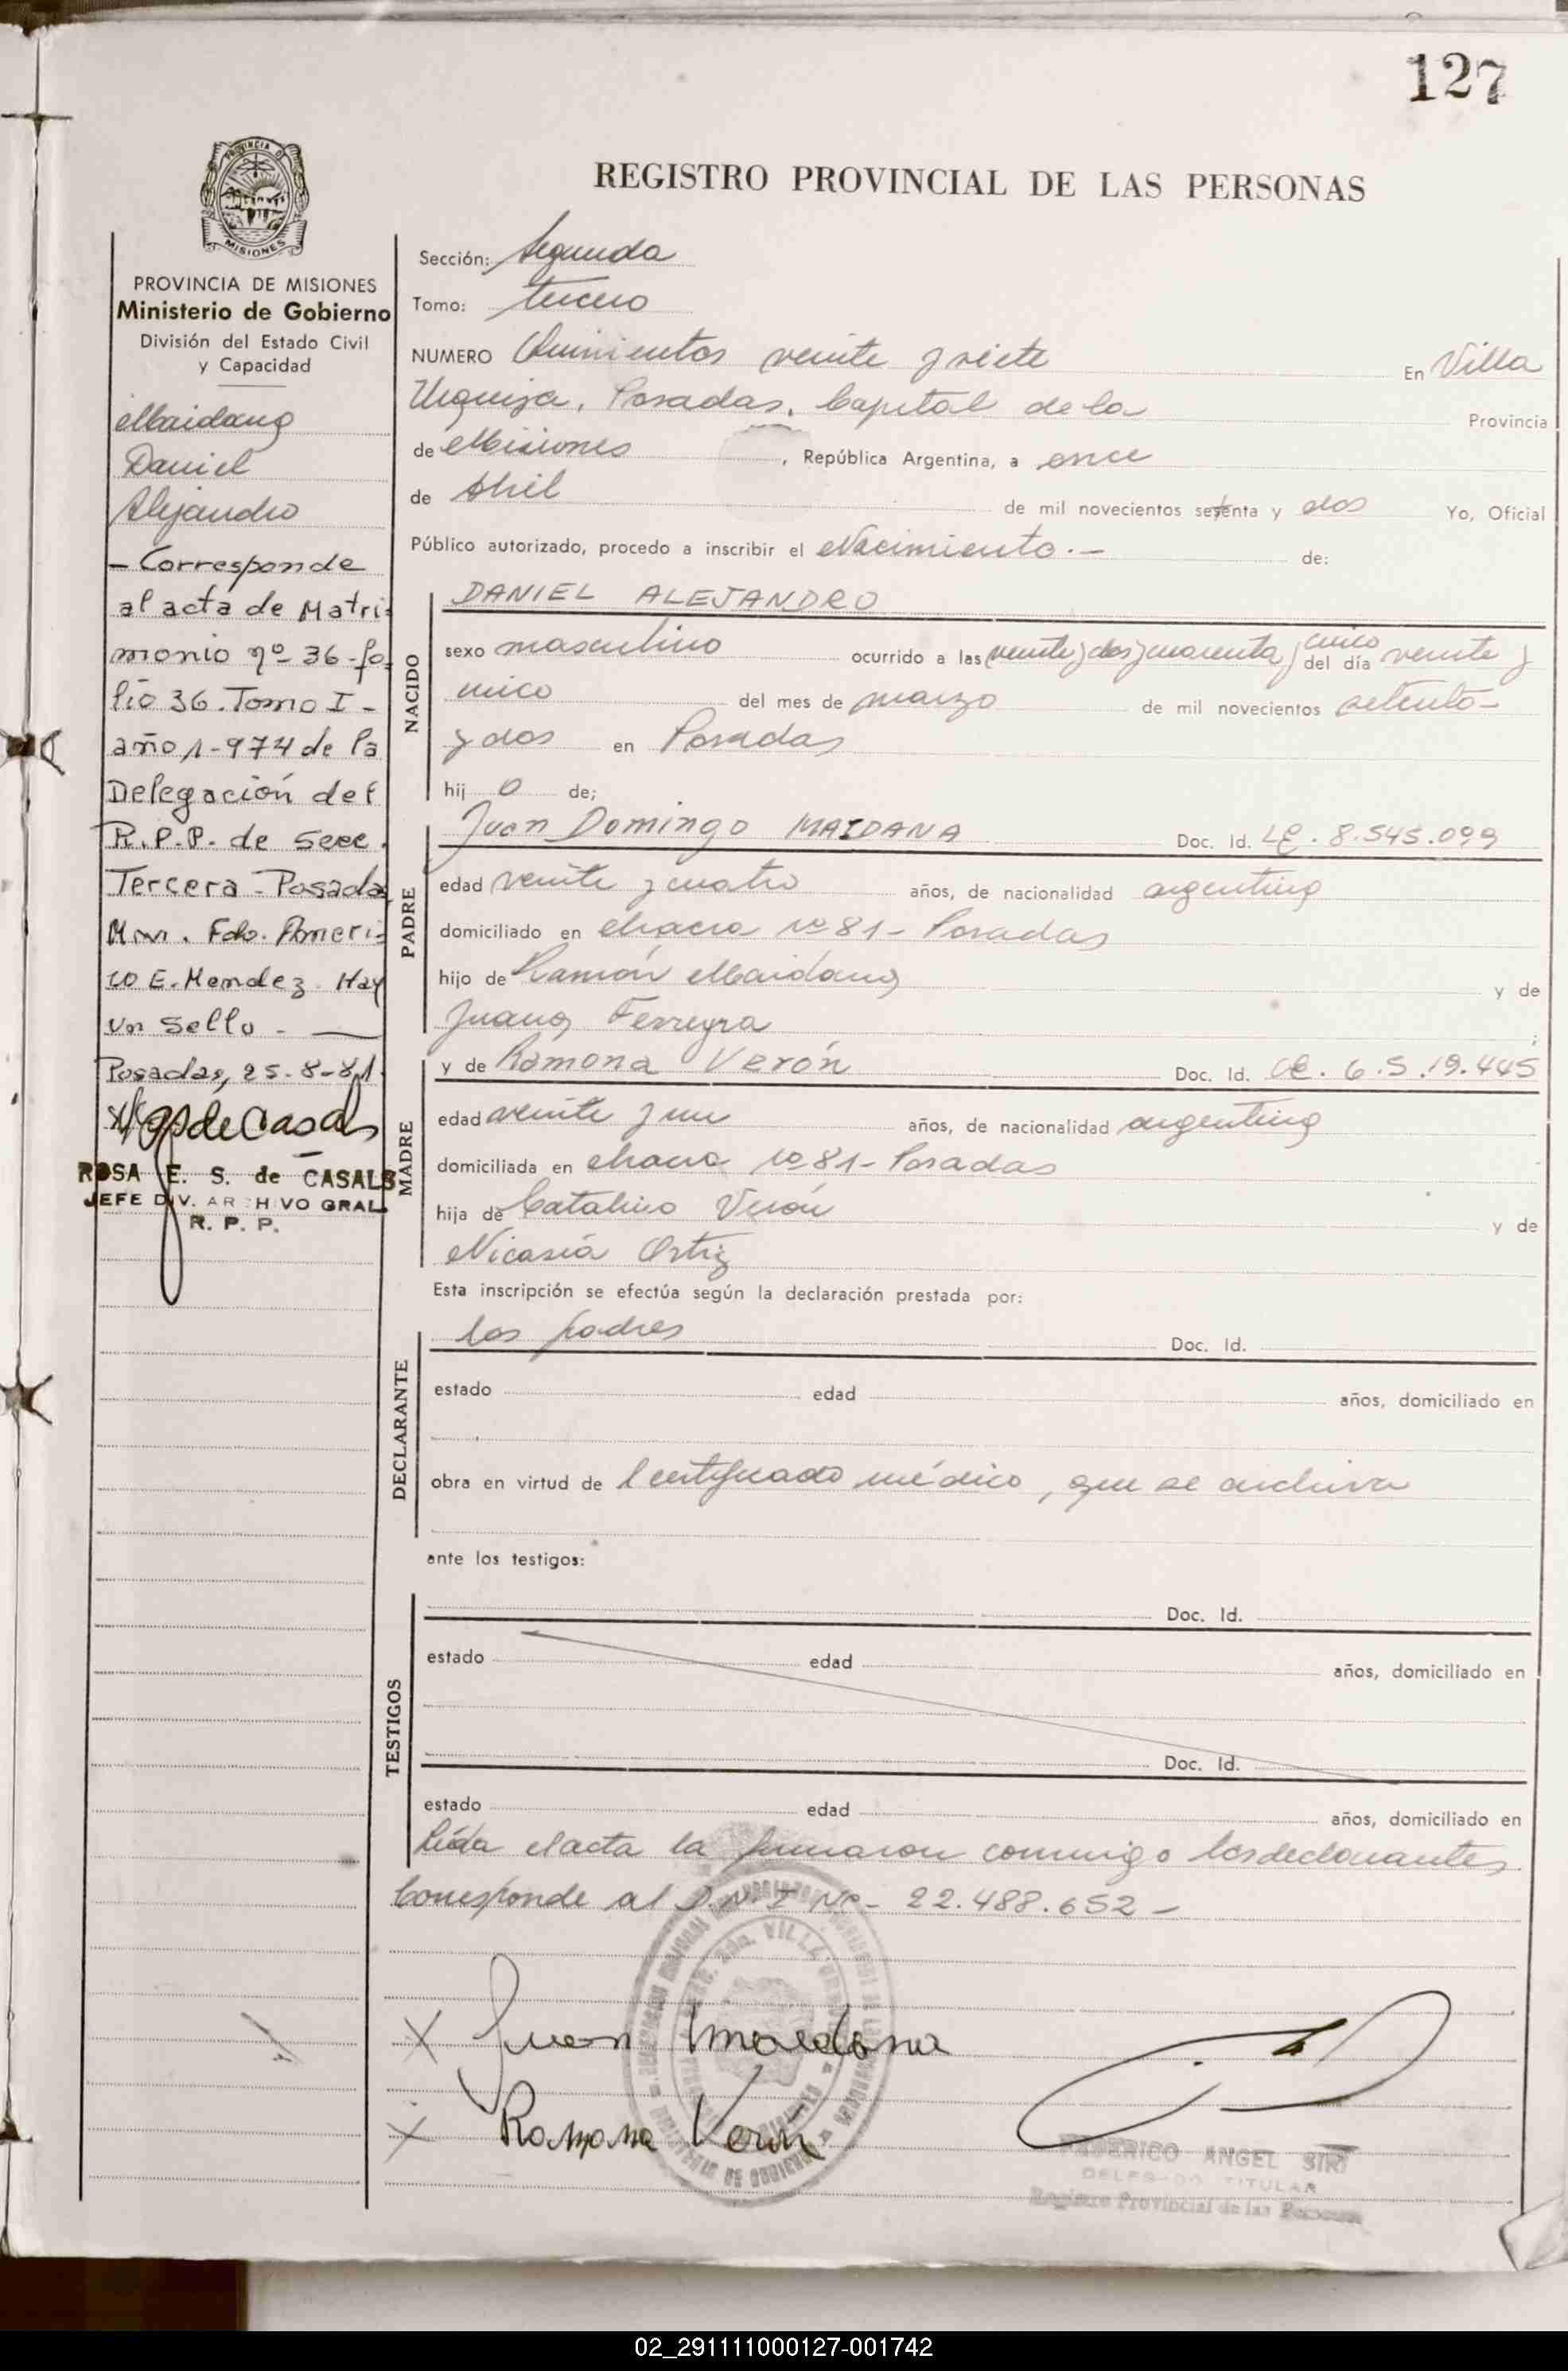 127
REGISTRO PROVINCIAL DE LAS PERSONAS
PROVINCIA DE MISIONES
MISIONES
PROVINCIA DE MISIONES
Ministerio de Gobierno
División del Estado Civil
y Capacidad
Maidana
Daniel
Alejandro
- Corresponde
al acta de Matri-
monio nº 36-fo-
lio 36. Tomo I -
año 1-974 de la
Delegación del
R.P.P. de Secc.
Tercera - Posadas
Mnes. Fdo. Americo
E. Mendez. Hay
un Sello -
Posadas, 25-8-81
ROSA E. S. de CASALS
JEFE DIV. ARCHIVO GRAL.
R. P. P.
Sección: Segunda
Tomo: tercero
NUMERO Quinientos veinte y siete En Villa
Urquiza, Posadas, Capital de la Provincia
de Misiones, República Argentina, a once
de Abril de mil novecientos setenta y dos Yo, Oficial
Público autorizado, procedo a inscribir el Nacimiento.- de:
NACIDO
DANIEL ALEJANDRO
sexo masculino ocurrido a las veinte y dos y cuarenta y cinco del día veinte y
cinco del mes de marzo de mil novecientos setenta-
y dos en Posadas
hij o de;
PADRE
Juan Domingo MAIDANA Doc. Id. LE. 8.545.099
edad veinte y cuatro años, de nacionalidad argentina
domiciliado en chacra nº 81 - Posadas
hijo de Ramón Maidana y de
Juana Ferreyra ;
MADRE
y de Ramona Verón Doc. Id. LC. 6.519.445
edad veinte y un años, de nacionalidad argentina
domiciliada en chacra nº 81 - Posadas
hija de Catalino Verón y de
Nicasia Ortiz
Esta inscripción se efectúa según la declaración prestada por:
DECLARANTE
los padres Doc. Id.
estado edad años, domiciliado en
obra en virtud de certificado médico, que se archiva
ante los testigos:
TESTIGOS
Doc. Id.
estado edad años, domiciliado en
Doc. Id.
estado edad años, domiciliado en
Leída el acta la firmaron conmigo los declarantes.
Corresponde al D.N.I Nº - 22.488.652 -
x Juan Maidana
x Ramona Verón
FEDERICO ANGEL SIRI
DELEGADO TITULAR
Registro Provincial de las Personas
02_291111000127-001742